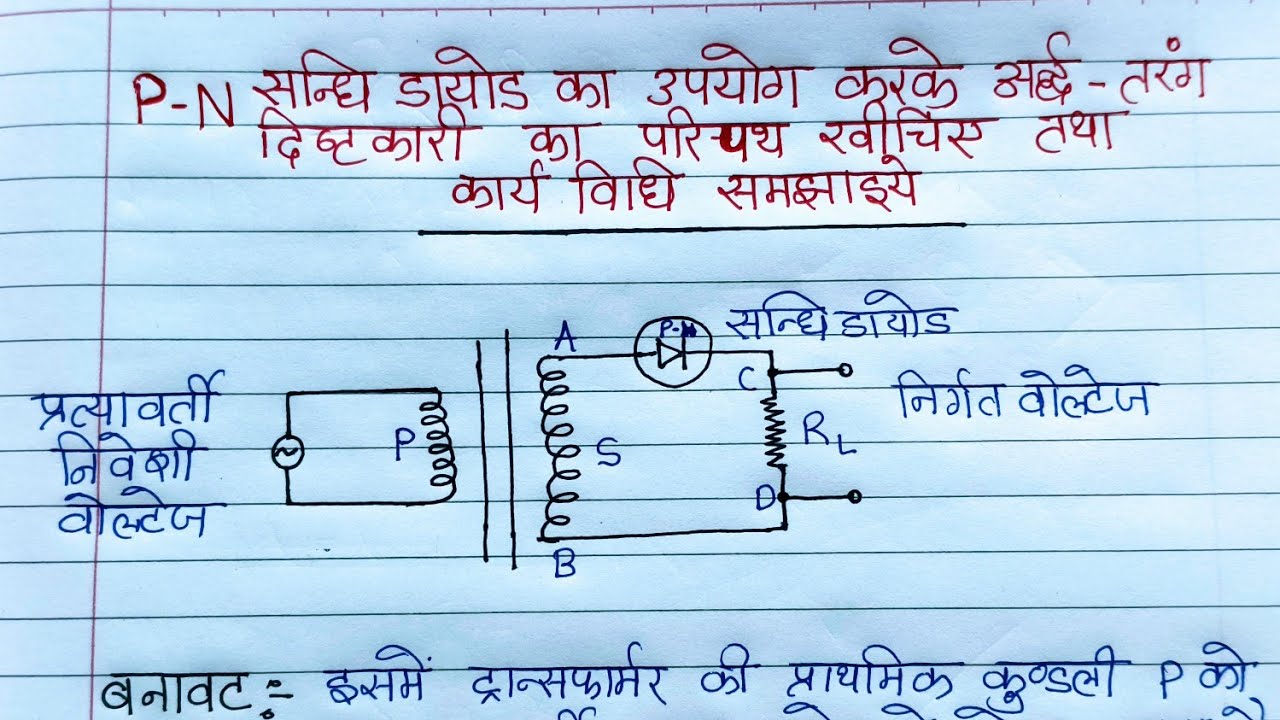 P-N सन्धि डायोड का उपयोग करके अर्द्ध-तरंग
दिष्टकारी का परिपथ खींचिए तथा
कार्य विधि समझाइये
P-N सन्धि डायोड
A
C
निर्गत वोल्टेज
प्रत्यावर्ती
निवेशी
वोल्टेज
P
S
RL
D
B
बनावट:- इसमें ट्रान्सफार्मर की प्राथमिक कुण्डली P को